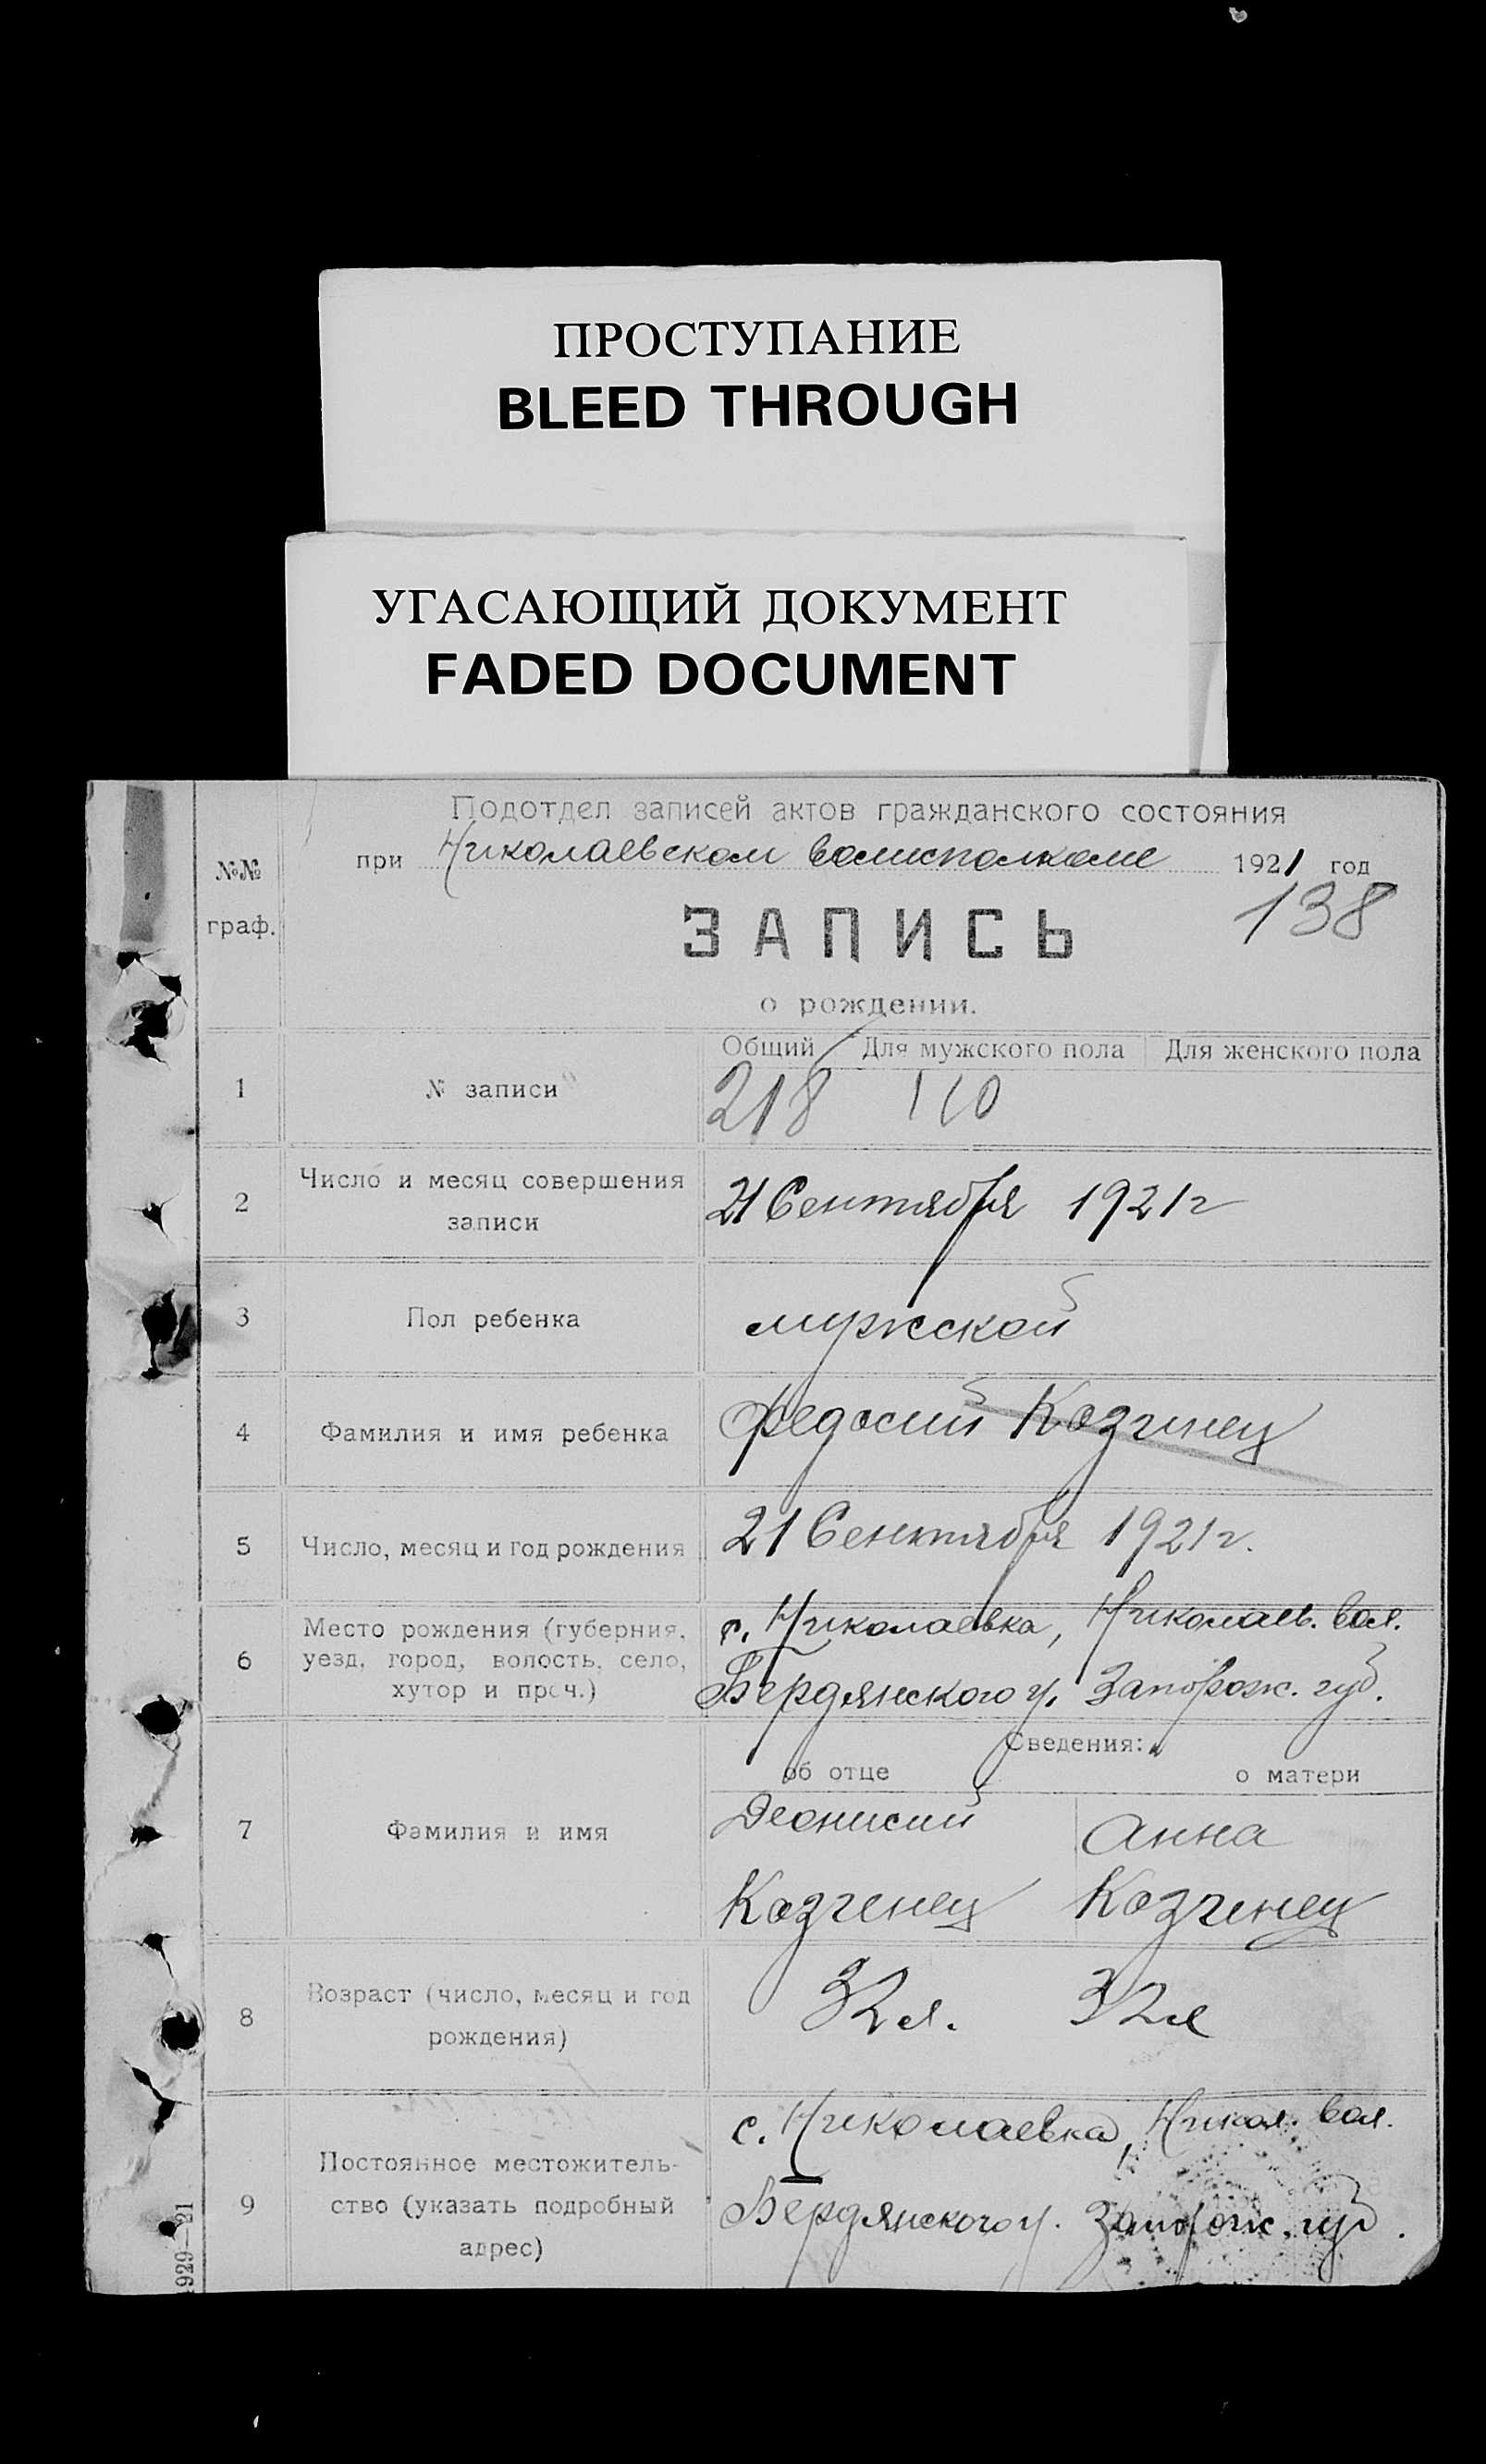 ПРОСТУПАНИЕ
BLEED THROUGH
УГАСАЮЩИЙ ДОКУМЕНТ
FADED DOCUMENT
Подотдел записей актов гражданского состояния
№№ граф.
при Николаевском волисполкоме 1921 год
138
ЗАПИСЬ
о рождении.
Общий Для мужского пола Для женского пола
1 № записи 218 110
2 Число и месяц совершения 21 Сентября 1921г
записи
3 Пол ребенка мужской
4 Фамилия и имя ребенка Федосий Козгинец
5 Число, месяц и год рождения 21 Сентября 1921г.
Место рождения (губерния, с. Николаевка, Николаев. вол.
6 уезд, город, волость, село,
хутор и проч.) Бердянского у. Запорож. губ.
Сведения:
об отце о матери
7 Фамилия и имя Деонисий Анна
Козгенец Козгенец
8 Возраст (число, месяц и год 32 л. 32 л
рождения)
с. Николаевка, Никол. вол.
Постоянное местожитель-
9 ство (указать подробный Бердянского у. Запорож. губ.
адрес)
929—21